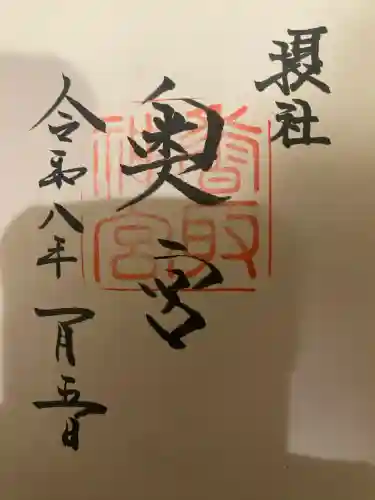 摂社
奥宮
香取神宮
令和八年一月五日